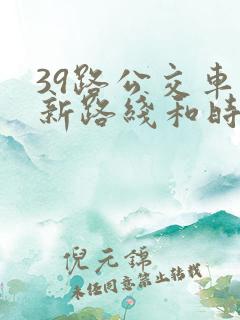 39路公交车
新路线和时
倪元锦
未经同意禁止转载